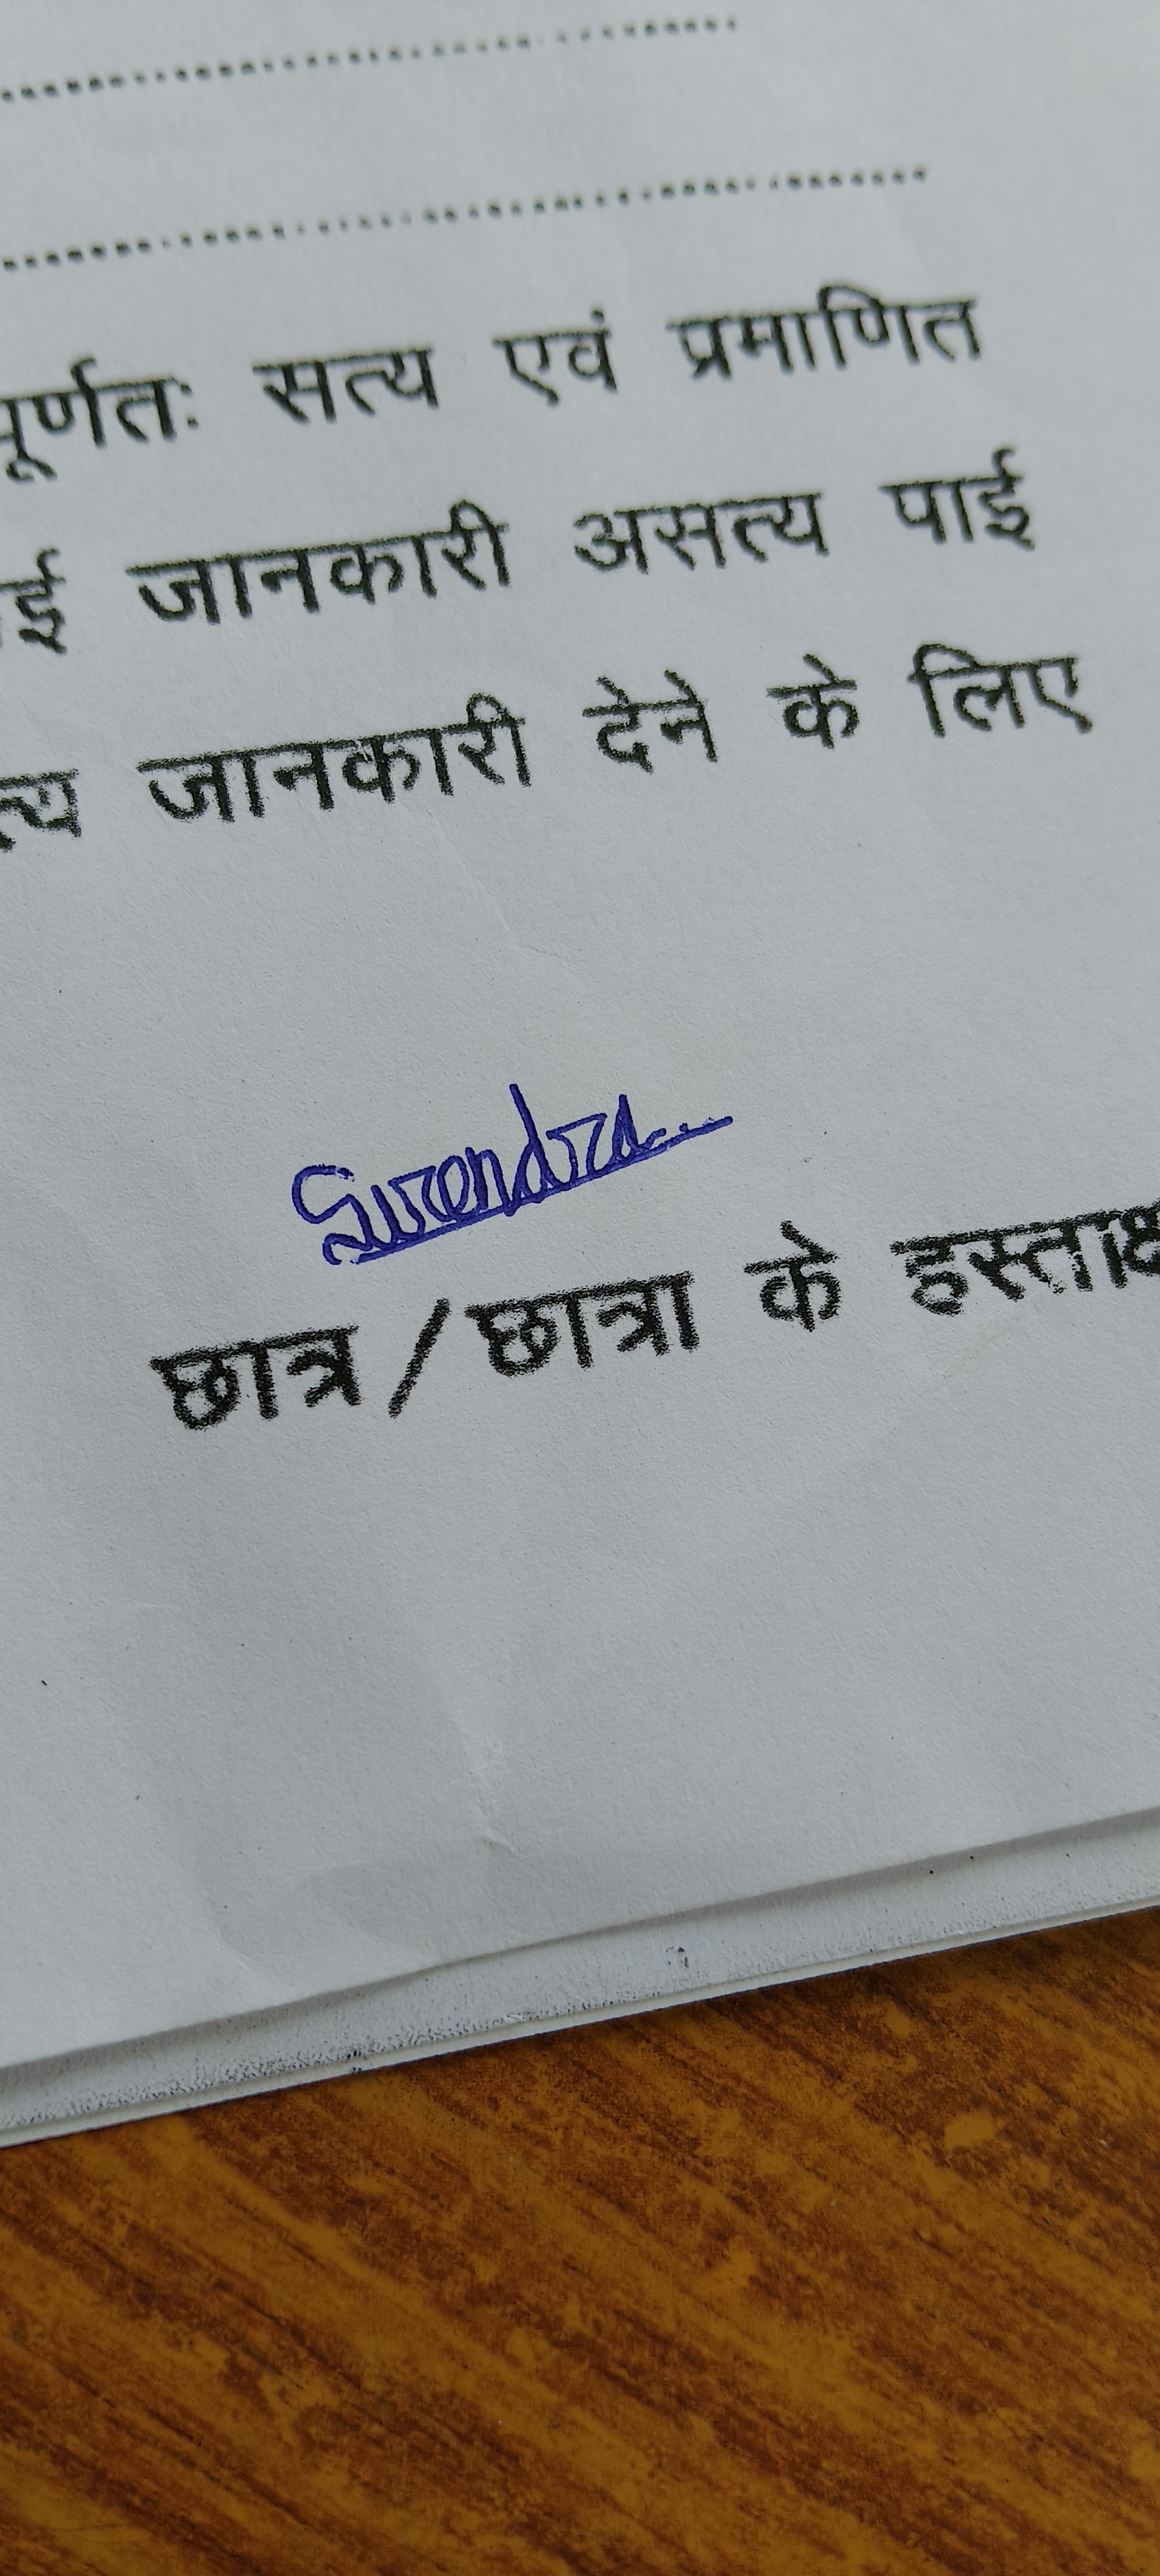 पूर्णतः सत्य एवं प्रमाणित
जानकारी असत्य पाई
जानकारी देने के लिए
Surendra
छात्र/छात्रा के